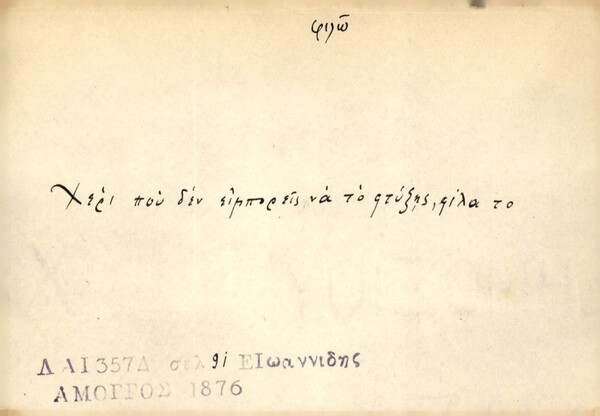 φιλῶ
Χέρι ποὺ δὲν εἰμπορεῖς νὰ τὸ φτύξῃς, φίλα το
ΛΑ1357Δ σελ 91 ΕΙωαννιδης
ΑΜΟΡΓΟΣ 1876